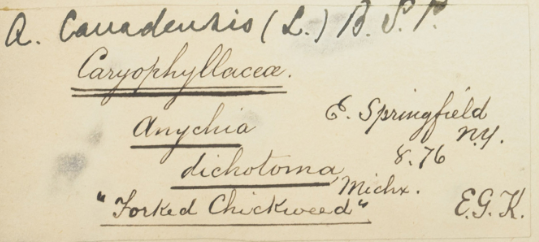 A. Canadensis (L.) B. S. P.
Caryophyllaceæ.
Anychia
dichotoma, Michx.
"Forked Chickweed"
E. Springfield
N.Y.
8.76
E.G.K.